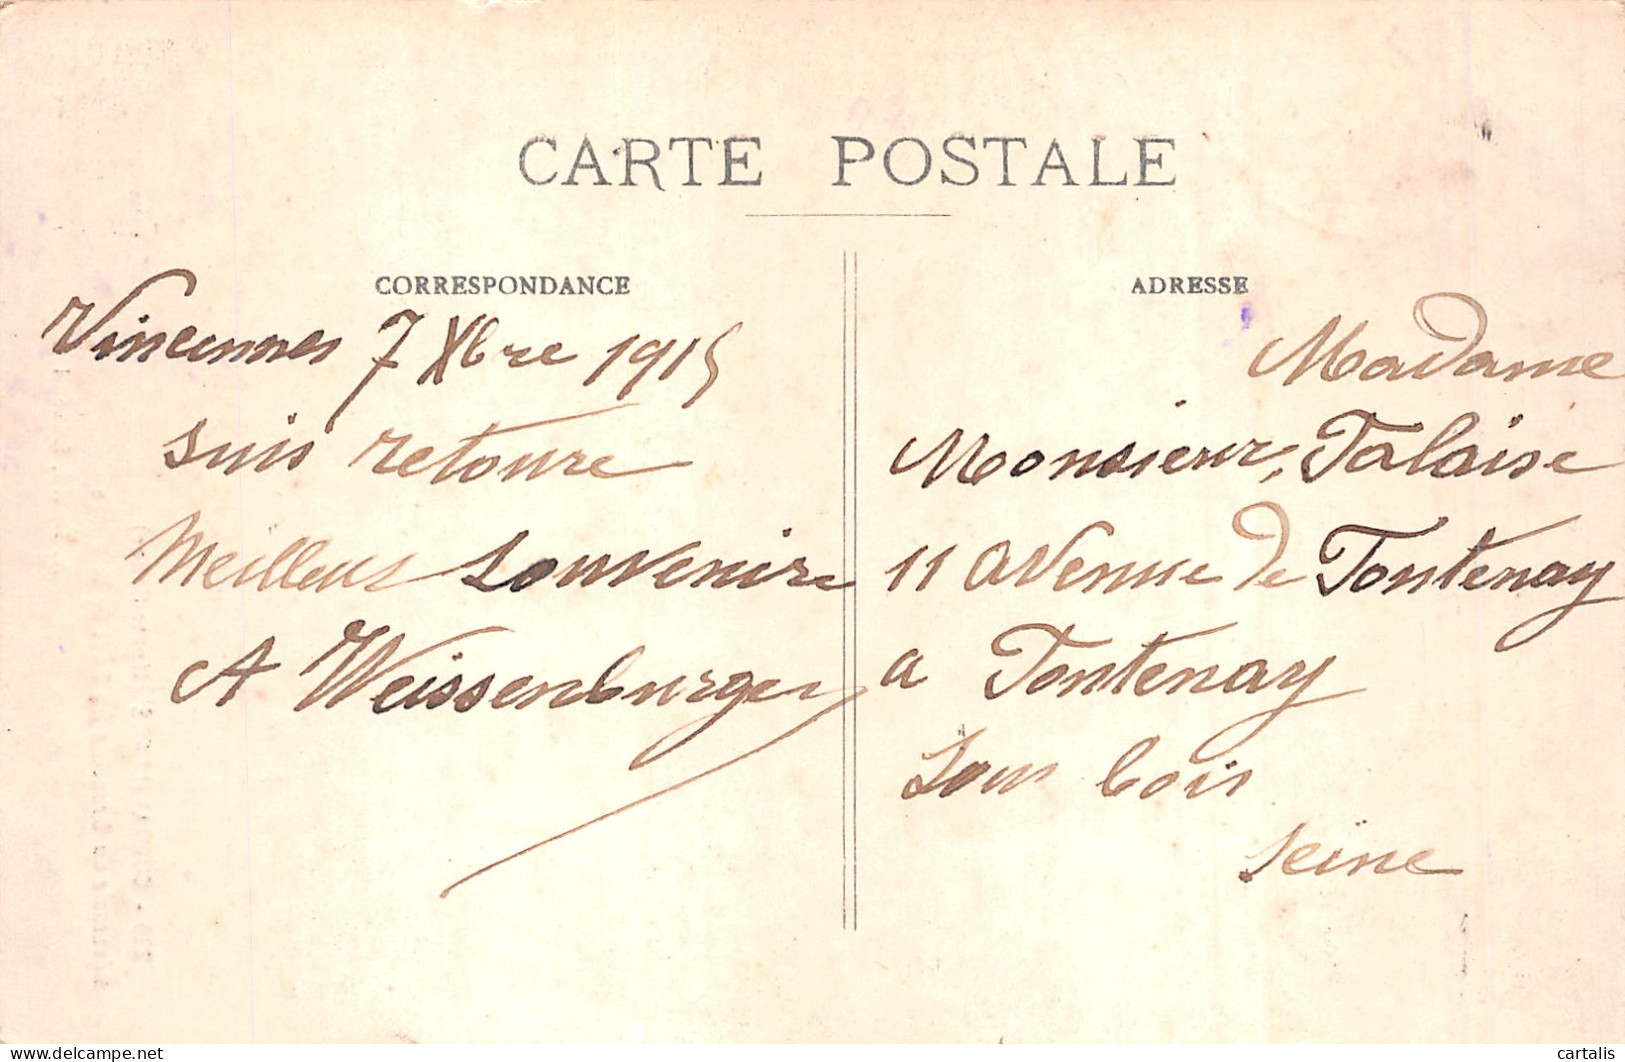 CARTE POSTALE
CORRESPONDANCE
Vincennes 7 Xbre 1915
suis retoure
Meilleus souvenire
A Weissenburger
ADRESSE
Madame
Monsieur, Falaise
11 avenue de Fontenay
a Fontenay
sous bois
seine
cartalis